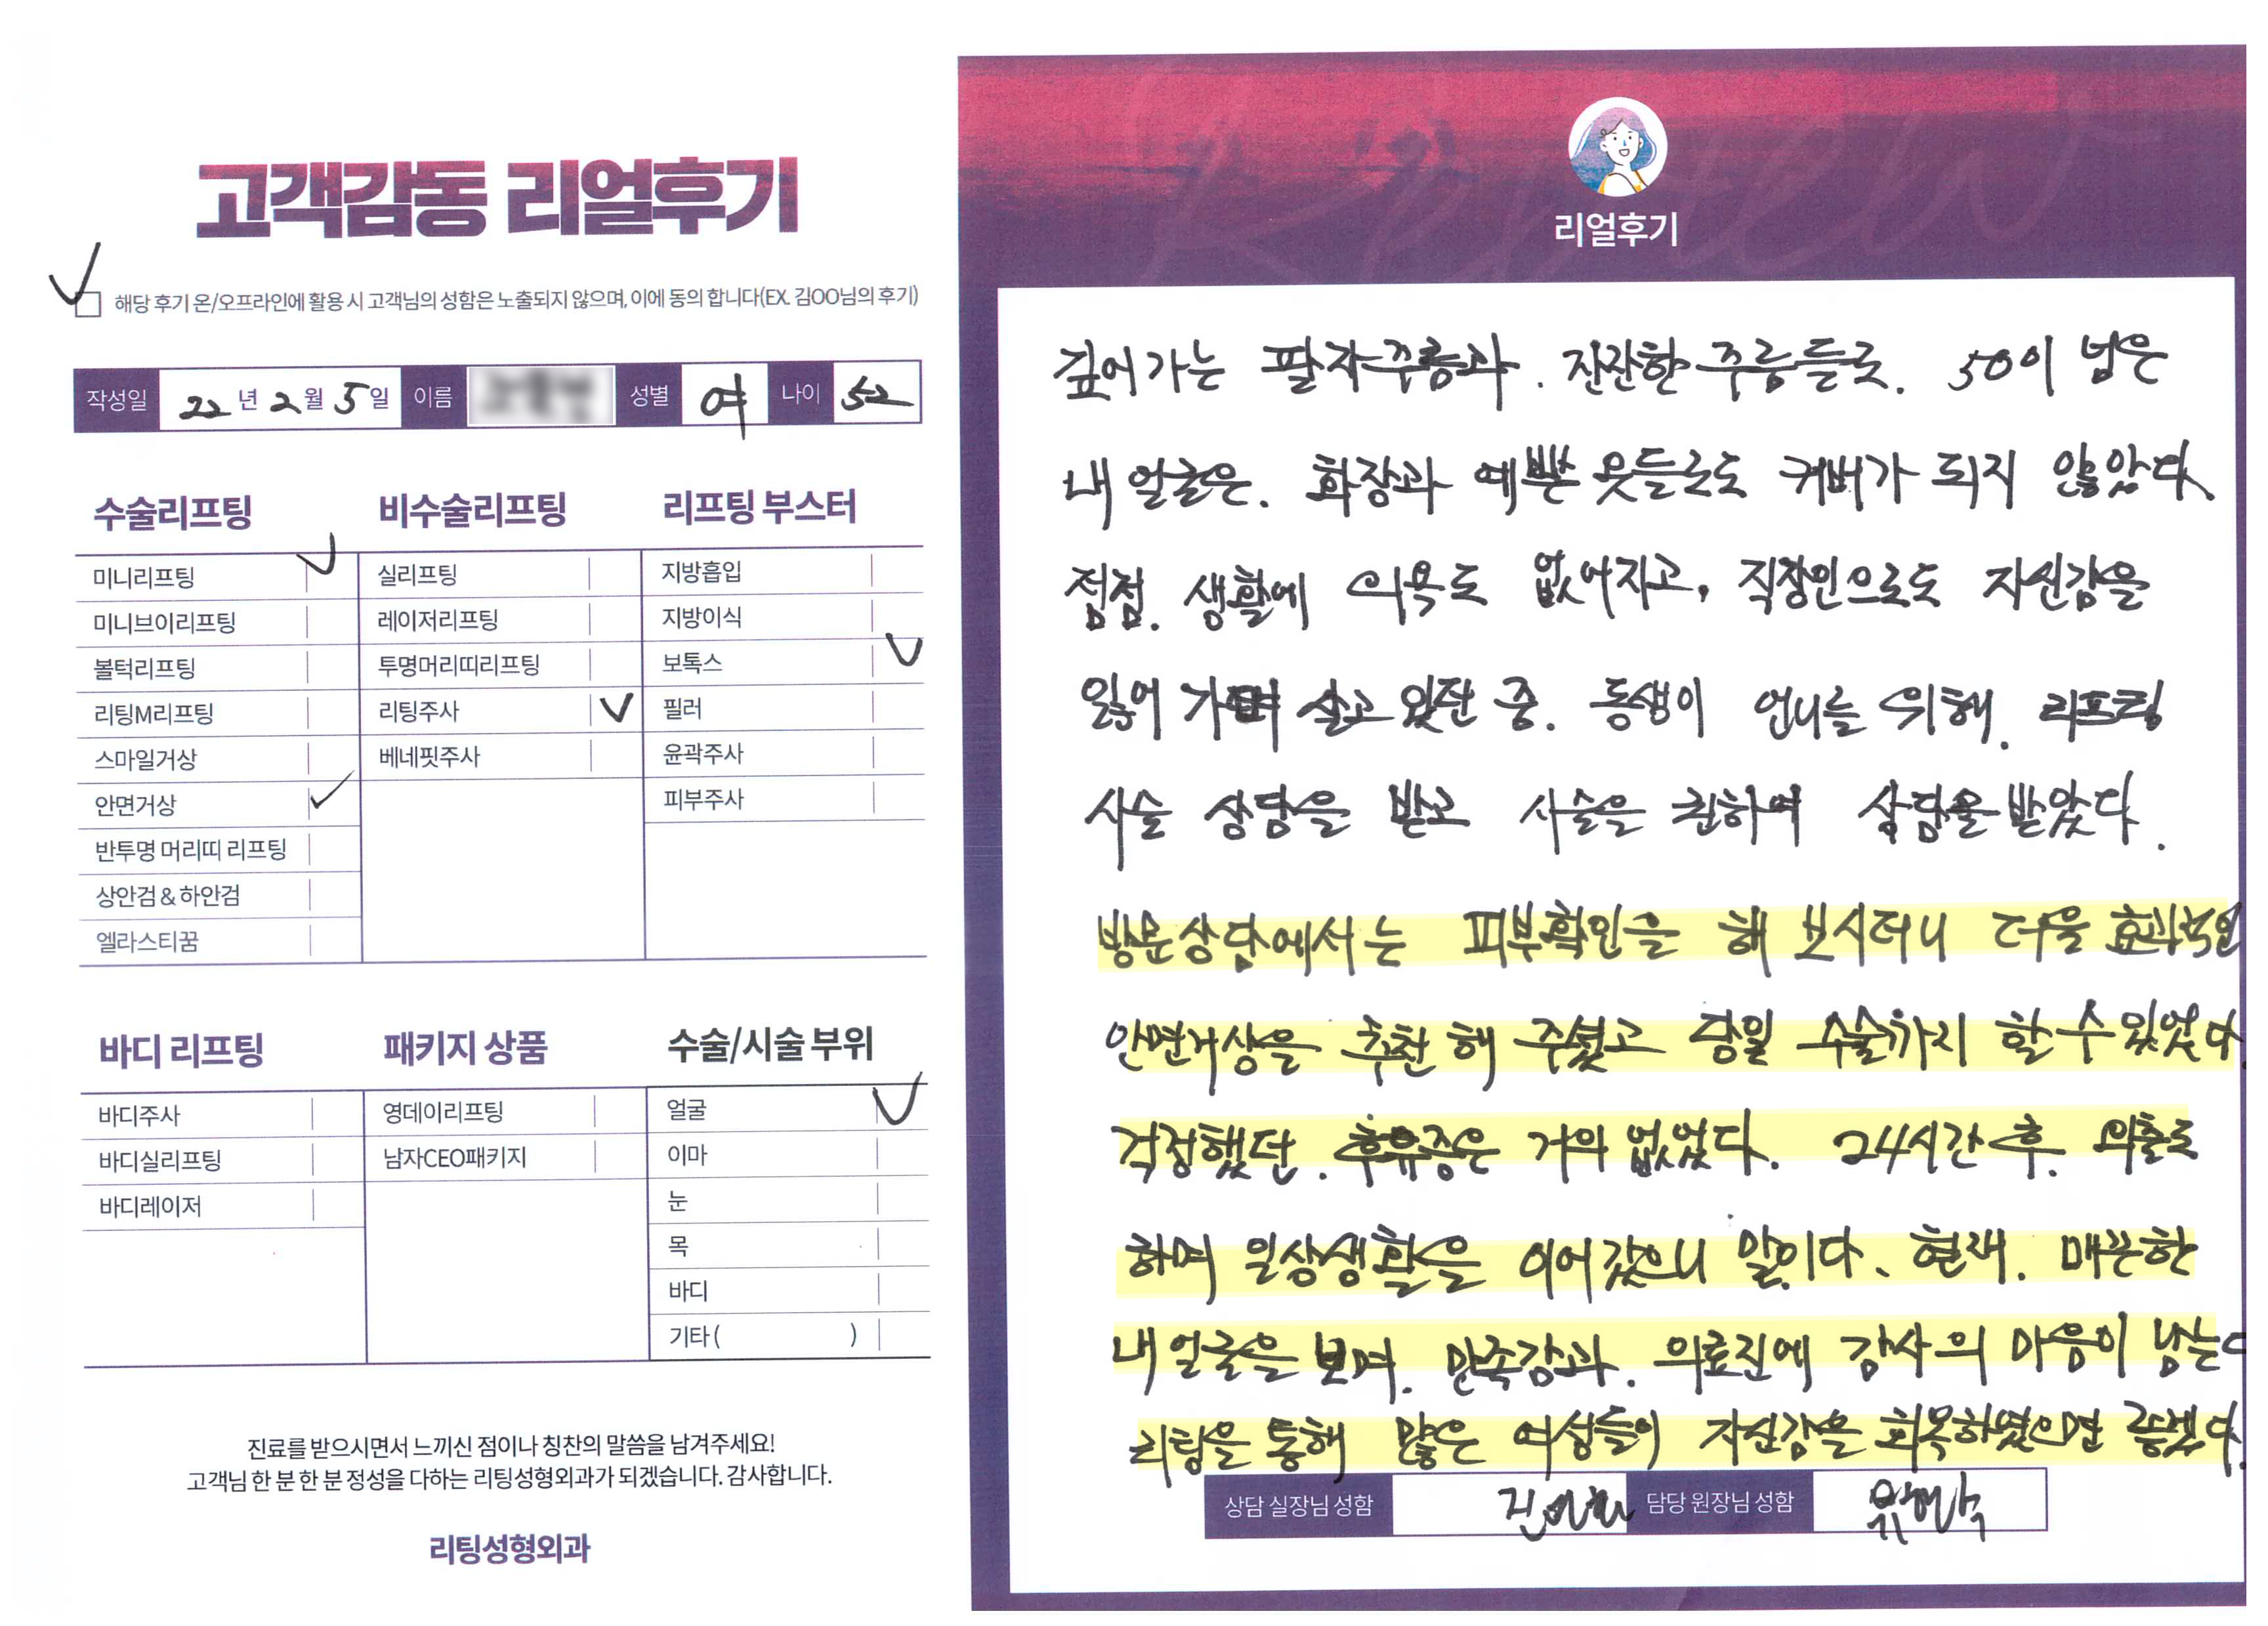 고객감동 리얼후기
해당 후기 온/오프라인에 활용 시 고객님의 성함은 노출되지 않으며, 이에 동의 합니다(EX. 김OO님의 후기)
작성일 22년 2월 5일 이름 성별 여 나이 52
수술리프팅
미니리프팅
미니브이리프팅
볼턱리프팅
리팅M리프팅
스마일거상
안면거상
반투명 머리띠 리프팅
상안검 & 하안검
엘라스티꿈
비수술리프팅
실리프팅
레이저리프팅
투명머리띠리프팅
리팅주사
베네핏주사
리프팅 부스터
지방흡입
지방이식
보톡스
필러
윤곽주사
피부주사
바디 리프팅
바디주사
바디실리프팅
바디레이저
패키지 상품
영데이리프팅
남자CEO패키지
수술/시술 부위
얼굴
이마
눈
목
바디
기타 ( )
진료를 받으시면서 느끼신 점이나 칭찬의 말씀을 남겨주세요!
고객님 한 분 한 분 정성을 다하는 리팅성형외과가 되겠습니다. 감사합니다.
리팅성형외과
Review
리얼후기
깊어가는 팔자주름과. 잔잔한 주름들로. 50이 넘은
내 얼굴은. 화장과 예쁜 옷들로도 커버가 되지 않았다.
점점. 생활에 의욕도 없어지고, 직장인으로도 자신감을
잃어 가며 살고 있단 중. 동생이 언니를 위해. 리프팅
시술 상담을 받고 시술을 권하여 상담을 받았다.
방문상담에서는 피부확인을 해 보시더니 더욱 효과적인
안면거상을 추천 해 주셨고 당일 수술까지 할 수 있었다.
걱정했던. 후유증은 거의 없었다. 24시간 후. 외출도
하며 일상생활을 이어갔으니 말이다. 현재. 매끈한
내 얼굴을 보며. 만족감과. 의료진에 감사의 마음이 남는다
리팅을 통해 많은 여성들이 자신감을 회복하였으면 좋겠다.
상담 실장님 성함 담당 원장님 성함